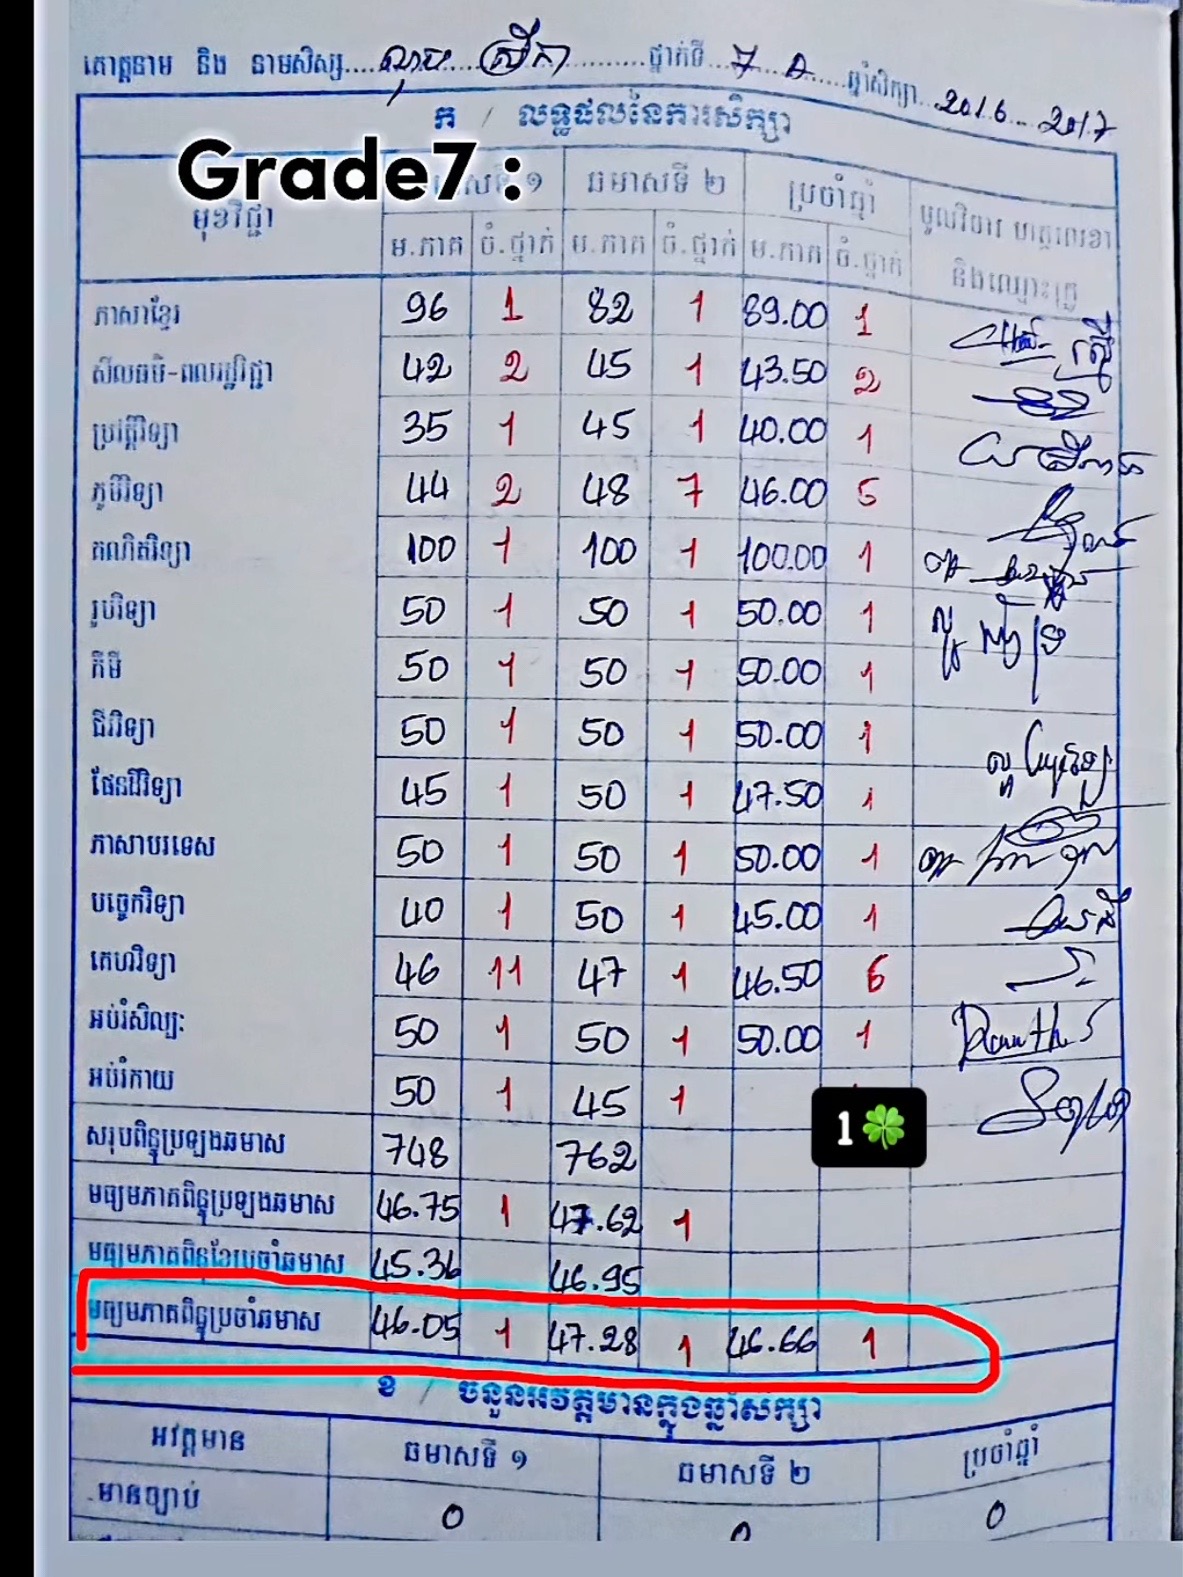 គោត្តនាម និង នាមសិស្ស.... ស្រីកា ..........ថ្នាក់ទី...7 A.....ឆ្នាំសិក្សា...2016...2017
ក / លទ្ធផលនៃការសិក្សា
Grade7 :
មុខវិជ្ជា ១ ឆមាសទី ២ ប្រចាំឆ្នាំ មូលវិចារ ហត្ថលេខា
ម.ភាគ ចំ.ថ្នាក់ ម.ភាគ ចំ.ថ្នាក់ ម.ភាគ ចំ.ថ្នាក់ និងឈ្មោះគ្រូ
ភាសាខ្មែរ 96 1 82 1 89.00 1
សីលធម៌-ពលរដ្ឋវិជ្ជា 42 2 45 1 43.50 2
ប្រវត្តិវិទ្យា 35 1 45 1 40.00 1
ភូមិវិទ្យា 44 2 48 7 46.00 5
គណិតវិទ្យា 100 1 100 1 100.00 1
រូបវិទ្យា 50 1 50 1 50.00 1
គីមី 50 1 50 1 50.00 1
ជីវវិទ្យា 50 1 50 1 50.00 1
ផែនដីវិទ្យា 45 1 50 1 47.50 1
ភាសាបរទេស 50 1 50 1 50.00 1
បច្ចេកវិទ្យា 40 1 50 1 45.00 1
គេហវិទ្យា 46 11 47 1 46.50 6
អប់រំសិល្បៈ 50 1 50 1 50.00 1
អប់រំកាយ 50 1 45 1
1🍀
សរុបពិន្ទុប្រឡងឆមាស 748 762
មធ្យមភាគពិន្ទុប្រឡងឆមាស 46.75 1 47.62 1
មធ្យមភាគពិន្ទុខែប្រចាំឆមាស 45.36 46.95
មធ្យមភាគពិន្ទុប្រចាំឆមាស 46.05 1 47.28 1 46.66 1
ខ / ចំនួនអវត្តមានក្នុងឆ្នាំសិក្សា
អវត្តមាន ឆមាសទី ១ ឆមាសទី ២ ប្រចាំឆ្នាំ
មានច្បាប់ 0 0 0